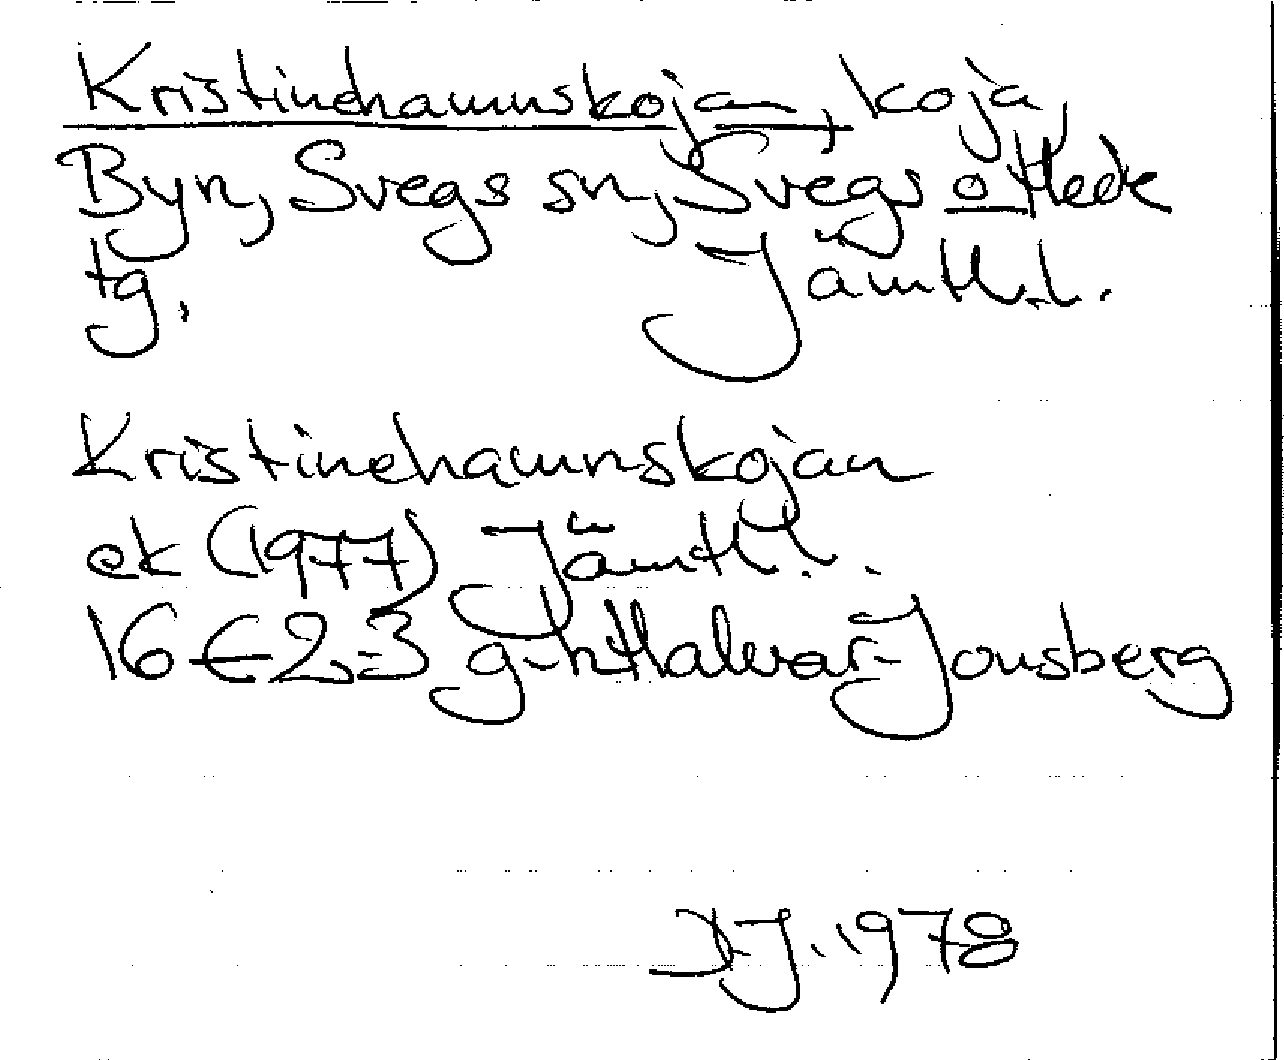 Kristinehamnskojan, koja,
Byn, Svegs sn, Svegs o Hede
tg. Jämtl. l.
Kristinehamnskojan
ek (1977) Jämtl. l.
16 E 2-3 g-h Halvar-Jonsberg
1978